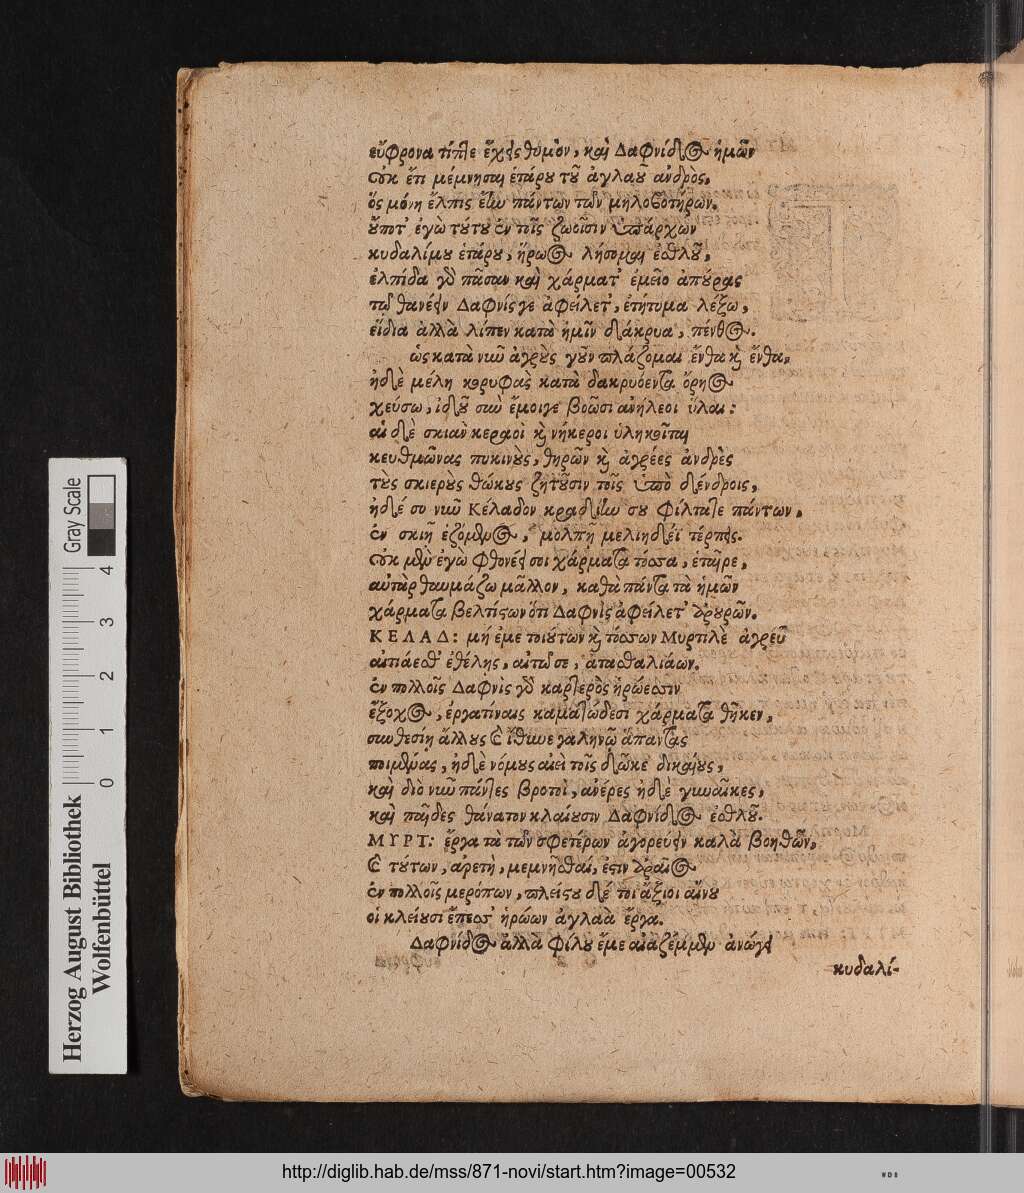 εὔφρονα τίπτε ἔχεις θυμὸν, καὶ Δαφνίδος ἡμῶν
οὐκ ἔτι μέμνησαι ἑτάρου τοῦ ἀγλαοῦ ἀνδρὸς,
ὅς μόνη ἔλπις ἔην πάντων τῶν μηλοβοτήρων.
οὔποτ' ἐγὼ τούτου ἐν τοῖς ζωοῖσιν ὑπάρχων
κυδαλίμου ἑτάρου, ἥρωος λήσομαι ἐσθλοῦ,
ἐλπίδα γὸ πᾶσαν καὶ χάρματ' ἐμεῖο ἀπούρας
τῷ θανέειν Δαφνίς γε ἀφείλετ', ἐτήτυμα λέξω,
εἴδια ἀλλὰ λίπεν κατὰ ἡμῖν δάκρυα, πένθος.
ὡς κατὰ νῦν ἀγροὺς γοῦν πλάζομαι ἔνθα καὶ ἔνθα,
ἠδὲ μέλη κορυφὰς κατὰ δακρυόεντα ὄρηος
χεύσω, ἰδοῦ σὺν ἔμοιγε βοῶσι ἀνήλεοι ὕλαι:
αἱ δὲ σκιαὶ κεραοὶ καὶ νήκεροι ὑληκοῖται
κευθμῶνας πυκινοὺς, θηρῶν καὶ ἀγρέες ἀνδρὲς
τοὺς σκιεροὺς θώκους ζητοῦσιν τοῖς ὑπὸ δένδροις,
ἠδέ συ νῦν Κέλαδον κραδίην σου φίλτατε πάντων,
ἐν σκιῇ ἑζόμενος, μολπῇ μελιηδέϊ τέρπεις.
οὐκ μὲν ἐγὼ φθονέεις σοι χάρματα τόσσα, ἑταῖρε,
αὐτὰρ θαυμάζω μᾶλλον, καθὰ πάντα τὰ ἡμῶν
χάρματα βελτίστων ὅτι Δαφνὶς ἀφείλετ' ἀρουρῶν.
ΚΕΛΑΔ: μή ἐμε τοιούτων καὶ τόσσων Μυρτιλὲ ἀγρεῦ
αἰτιάεσθ' ἐθέλης, αἰτῶ σε, ἀτασθαλιάων.
ἐν πολλοῖς Δαφνὶς γὸ καρτερὸς ἡρώεσσιν
ἔξοχος, ἐργατίναις καματώδεσι χάρματα θῆκεν,
συνθεσίῃ ἄλλους ἐϊθυνε γαληνῷ ἅπαντας
ποιμένας, ἠδὲ νόμους αἰεὶ τοῖς δῶκε δικαίους,
καὶ διὸ νῦν πάντες βροτοὶ, ἀνέρες ἠδὲ γυναῖκες,
καὶ παῖδες θάνατον κλαίουσιν Δαφνίδος ἐσθλοῦ.
ΜΥΡΤ: ἔργα τὰ τῶν σφετέρων ἀγορεύειν καλὰ βοηθῶν,
ἐ τούτων, ἀρετὴ, μεμνῆσθαί, ἐστιν ὁραῖος
ἐν πολλοῖς μερόπων, πλείστου δέ τοι ἄξιοι αἴνου
οἱ κλείουσι ἔπεσσ' ἡρώων ἀγλαὰ ἔργα.
Δαφνίδος ἀλλὰ φίλου ἔμε αἰαζέμμεν ἀνώγει
κυδαλί-
Gray Scale
4
3
2
1
0
Herzog August Bibliothek
Wolfenbüttel
http://diglib.hab.de/mss/871-novi/start.htm?image=00532
WDB